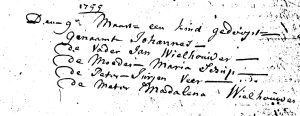 1799
Den 9 Maarte een kind gedoopt
genaamt Johannes
de Vader Jan Wielhouwer
de Moeder Maria
de Peter Jurjen Veer
de Meter Madalena Wielhouwer